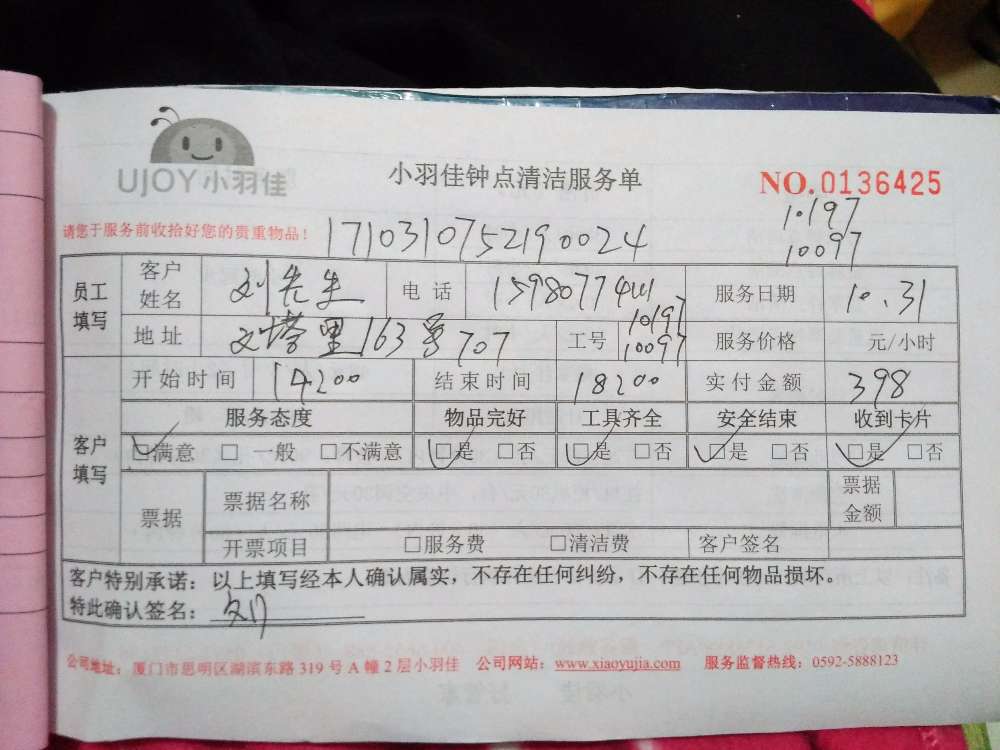 UJOY小羽佳
小羽佳钟点清洁服务单
NO.0136425
请您于服务前收拾好您的贵重物品！
1710310752190024
10197
10097
员工填写
客户姓名 刘先生 电话 服务日期 10.31
地址 文塔里163号707 工号 10197 10097 服务价格 元/小时
客户填写
开始时间 14200 结束时间 18200 实付金额 398
服务态度 物品完好 工具齐全 安全结束 收到卡片
□满意 □一般 □不满意 □是 □否 □是 □否 □是 □否 □是 □否
票据 票据名称 票据金额
开票项目 □服务费 □清洁费 客户签名
客户特别承诺：以上填写经本人确认属实，不存在任何纠纷，不存在任何物品损坏。
特此确认签名：刘
公司地址：厦门市思明区湖滨东路 319 号 A 幢 2 层小羽佳 公司网站：www.xiaoyujia.com 服务监督热线：0592-5888123